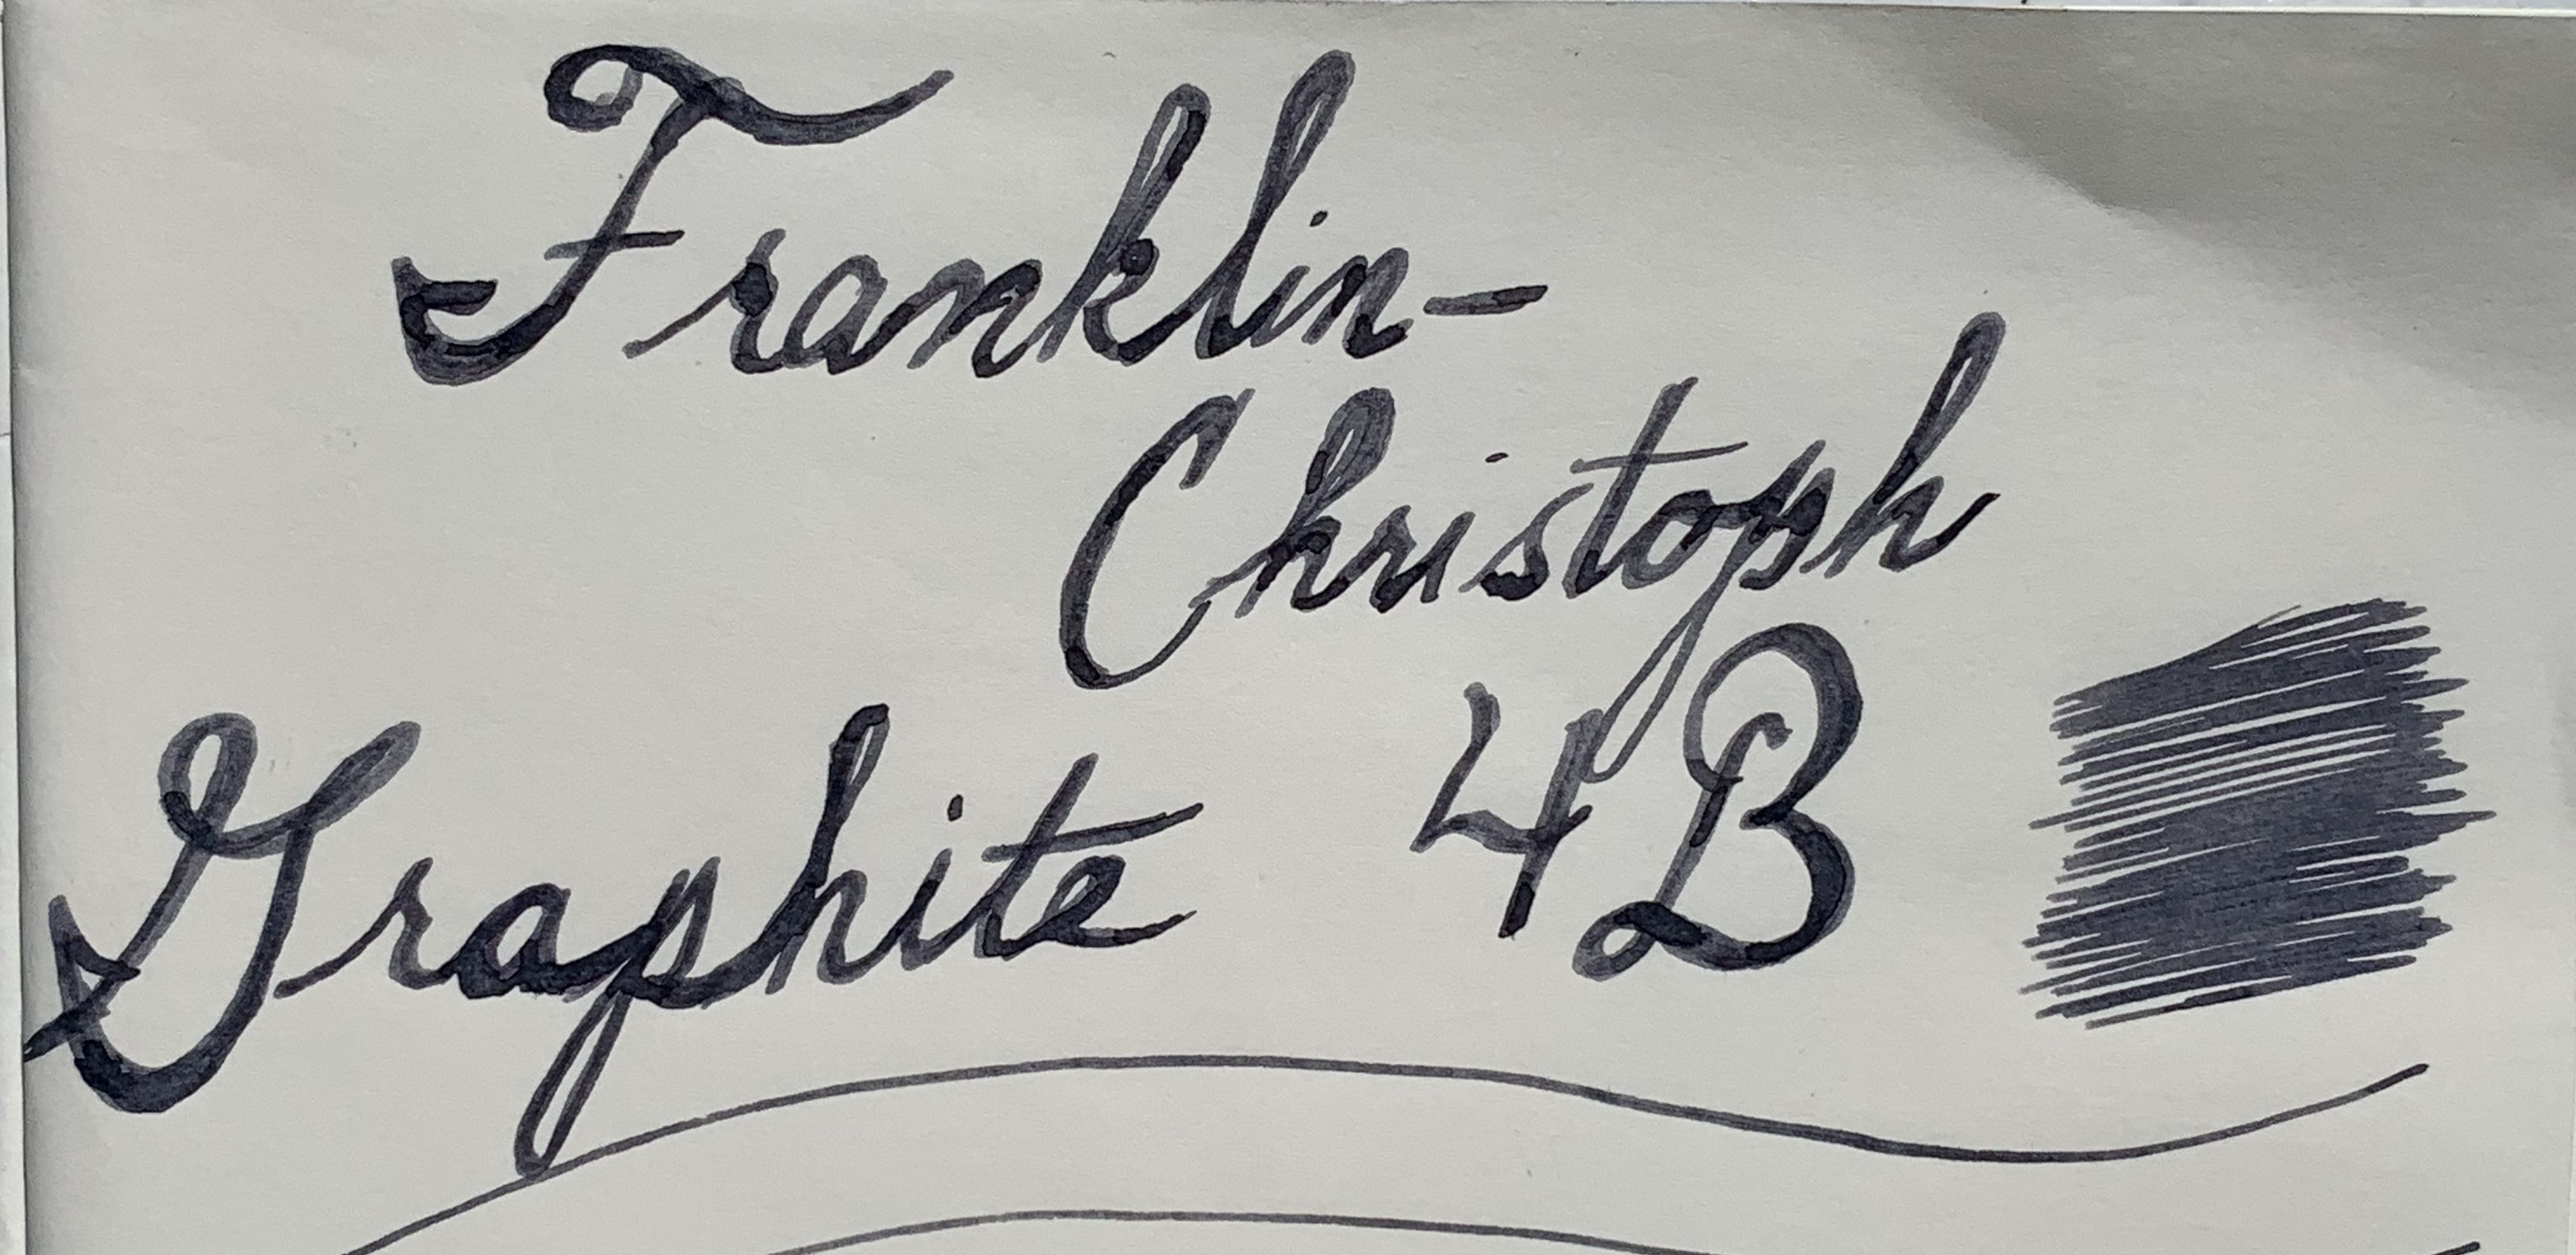 Franklin-
Christoph
Graphite 4B